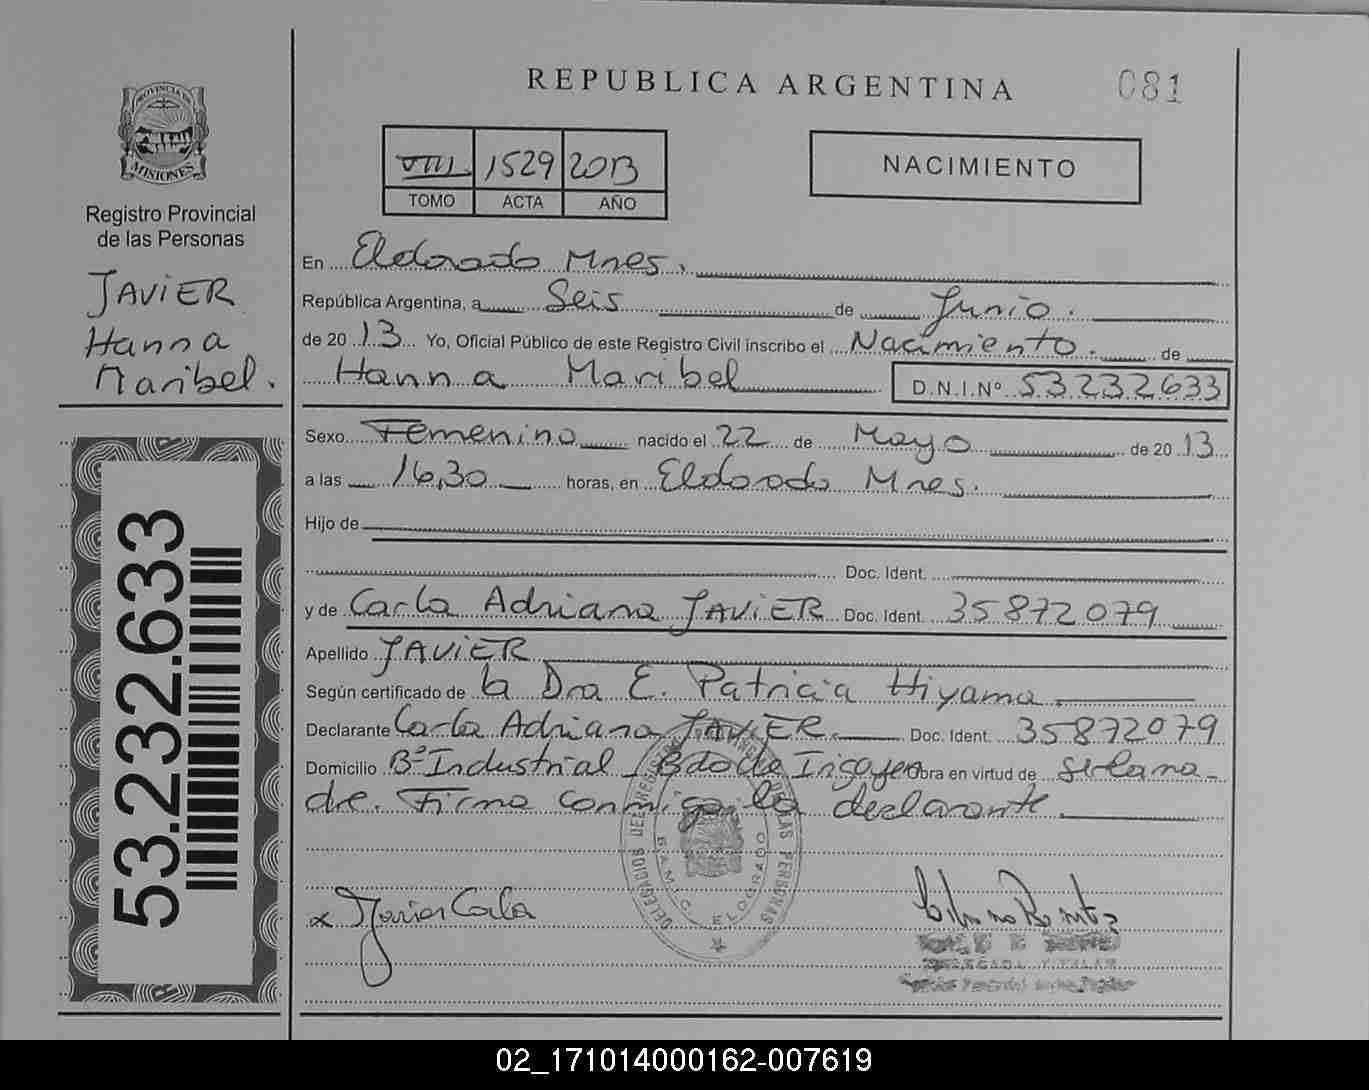 REPUBLICA ARGENTINA
081
PROVINCIA DE
MISIONES
Registro Provincial
de las Personas
JAVIER
Hanna
Maribel.
53.232.633
VIII 1529 2013
TOMO ACTA AÑO
NACIMIENTO
En Eldorado Mnes.
República Argentina, a Seis de Junio.
de 20 13 Yo, Oficial Público de este Registro Civil inscribo el Nacimiento. de
Hanna Maribel D.N.I.Nº 53232633
Sexo Femenino nacido el 22 de Mayo de 20 13
a las 16,30 horas, en Eldorado Mnes.
Hijo de
Doc. Ident.
y de Carla Adriana JAVIER Doc. Ident. 35872079
Apellido JAVIER
Según certificado de la Dra E. Patricia Hiyama.
Declarante Carla Adriana JAVIER. Doc. Ident. 35872079
Domicilio Bº Industrial Bdo de Irigoyen Obra en virtud de ser la ma-
dre. Firma conmigo la declarante.
DELEGACIOS DEL REGISTRO PROVINCIAL DE LAS PERSONAS
S.A.M.I.C. ELDORADO
x Javier Carla
DELEGADA TITULAR
02_171014000162-007619